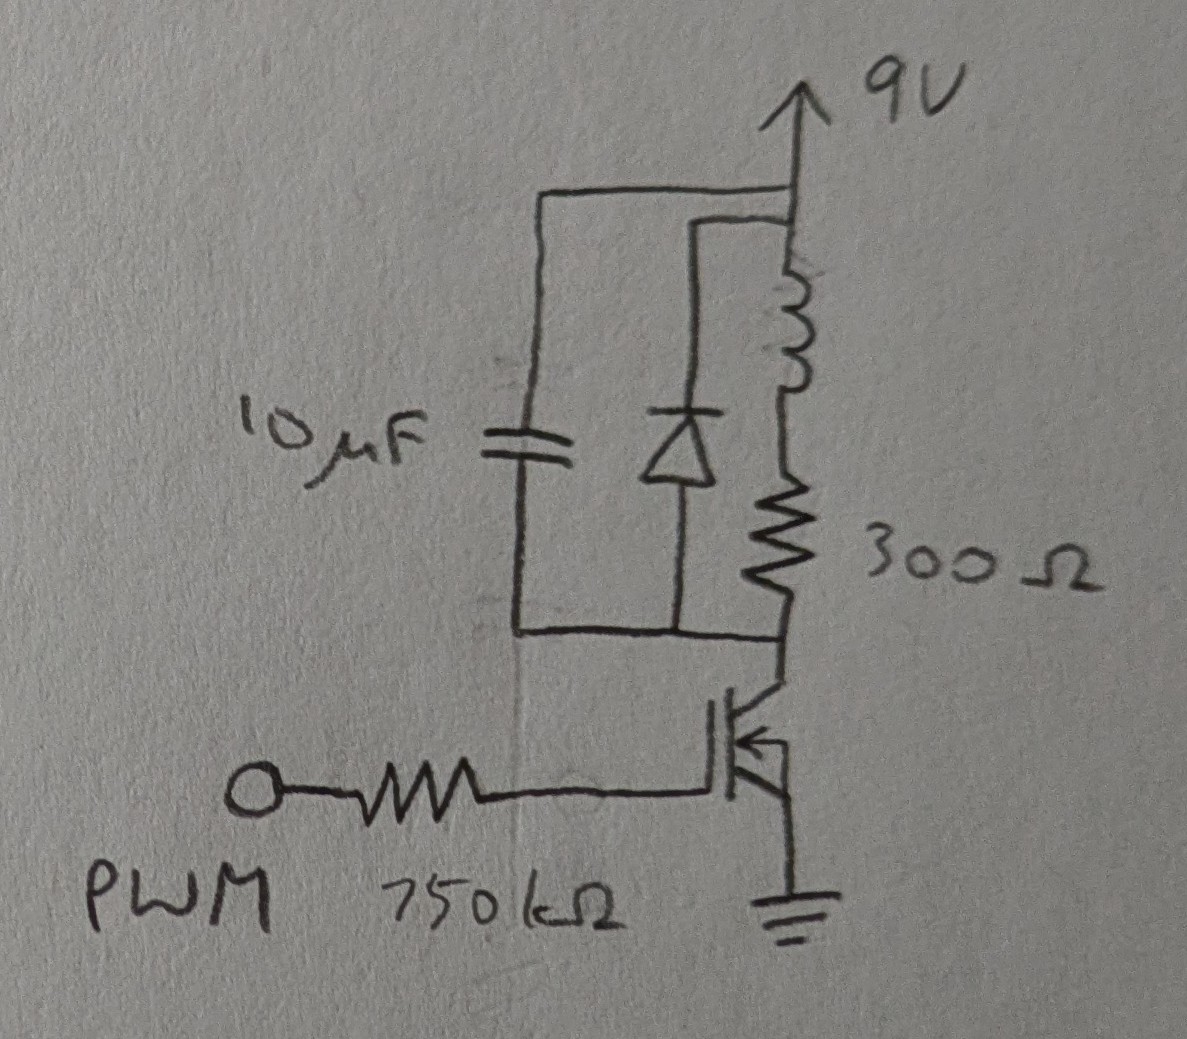 9V
10µF
300 Ω
PWM
750kΩ